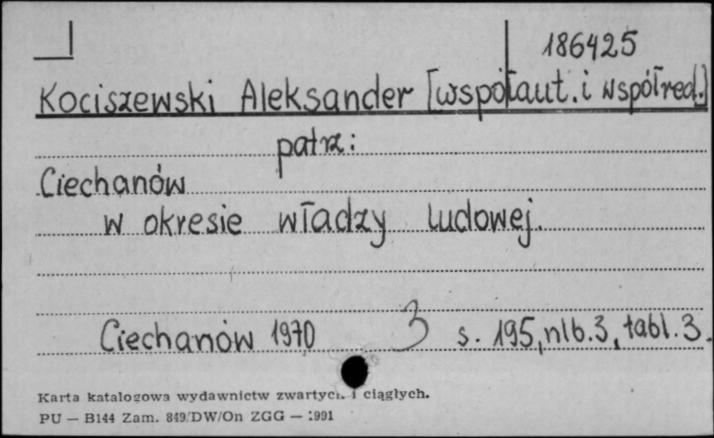 186425
Kociszewski Aleksander [współaut. i współred.]
patrz:
Ciechanów
w okresie władzy ludowej.
Ciechanów 1970 3 s. 195, nlb. 3, tabl. 3.
Karta katalogowa wydawnictw zwartych i ciągłych.
PU — B144 Zam. 849/DW/On ZGG — 1991